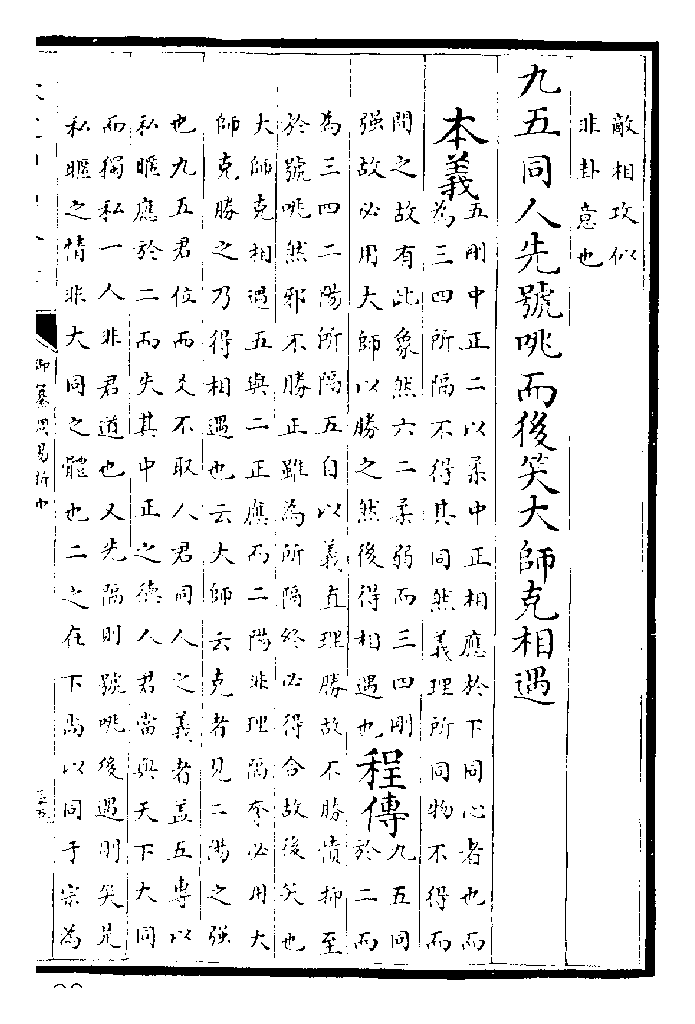 敵相攻似
非卦意也
九五同人先號咷而後笑大師克相遇
本義
五剛中正二以柔中正相應於下同心者也而
為三四所隔不得其同然義理所同物不得而
間之故有此象然六二柔弱而三四剛
强故必用大師以勝之然後得相遇也
程傳
九五同
於二而
為三四二陽所隔五自以義直理勝故不勝憤抑至
於號咷然邪不勝正雖為所隔終必得合故後笑也
大師克相遇五與二正應而二陽非理隔奪必用大
師克勝之乃得相遇也云大師云克者見二陽之强
也九五君位而爻不取人君同人之義者盖五專以
私暱應於二而失其中正之德人君當與天下大同
而獨私一人非君道也又先隔則號咷後遇則笑是
私暱之情非大同之體也二之在下尚以同于宗為
御纂周易折中